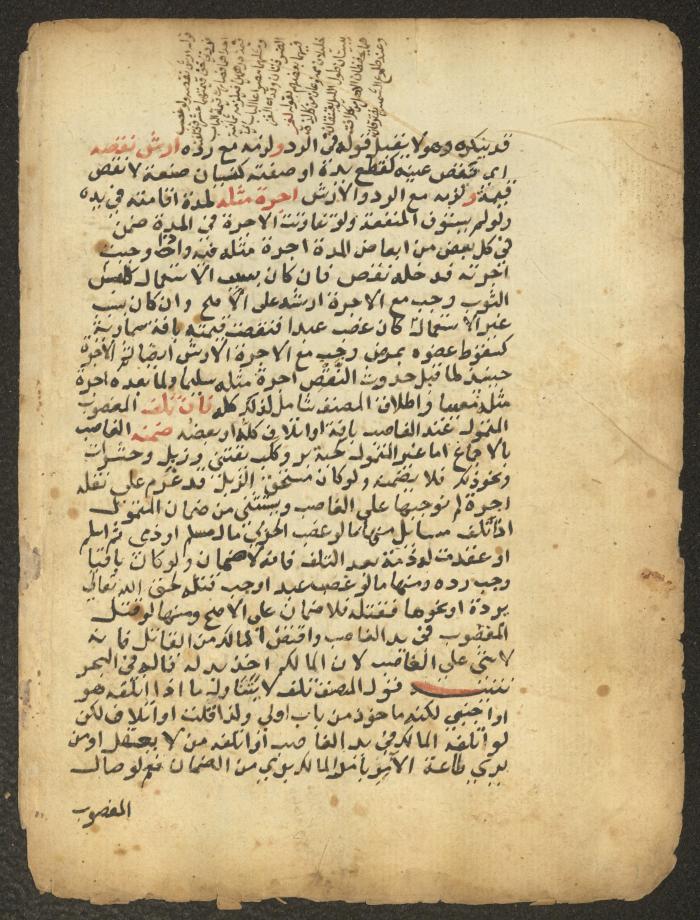 قد ينكره وهو لا يقبل قوله في الرد ولزمه مع رده ارش نقصه
اي نقص عينه كقطع يده او صفته كنسيان صنعة لا نقص
قيمة ولزمه مع الرد والارش اجرة مثله لمدة اقامته في يده
ولو لم يستوف المنفعة ولو تفاوتت الاجرة في المدة ضمن
في كل بعض من ابعاض المدة اجرة مثله فيه واذا وجبت
اجرته قد خله نقص فان كان بسبب الاستعمال كلبس
الثوب وجب مع الاجرة ارشه على الاصح وان كان بسبب
غير الاستعمال كان غصب عبدا فنقصت قيمته بافة سماوية
كسقوط عضوه بمرض وجب مع الاجرة الارش ايضا ثم الاجرة
حينئذ لما قبل حدوث النقص اجرة مثله سليما ولما بعده اجرة
مثله معيبا واطلاق المصنف شامل لذلك كله فان تلف المغصوب
المتمول عند الغاصب بافة او اتلاف كله او بعضه ضمنه الغاصب
بالاجماع اما غير المتمول كحبة بر وكلب يقتنى وزبل وحشرات
ونحو ذلك فلا يضمنه ولو كان مستحق الزبل قد غرم على نقله
اجرة لم نوجبها على الغاصب ويستثنى من ضمان المتمول
اذا تلف مسايل منها ما لو غصب الحربي مال مسلم او ذمي ثم اسلم
او عقدت له ذمة بعد التلف فانه لا ضمان ولو كان باقيا
وجب رده ومنها ما لو غصب عبدا وجب قتله لحق الله تعالى
بردة او نحوها فقتله فلا ضمان على الاصح ومنها لو قتل
المغصوب في يد الغاصب واقتص المالك من القاتل فانه
لا شي على الغاصب لان المالك اخذ بدله قاله في البحر
تنبيه قول المصنف تلف لا يتناول ما اذا اتلفه هو
او اجنبي لكنه ماخوذ من باب اولى ولذا قلت او اتلاف لكن
لو اتلفه المالك في يد الغاصب او اتلفه من لا يعقل او من
يرى طاعة الامر بامر المالك برئ من الضمان نعم لو صال
المغصوب